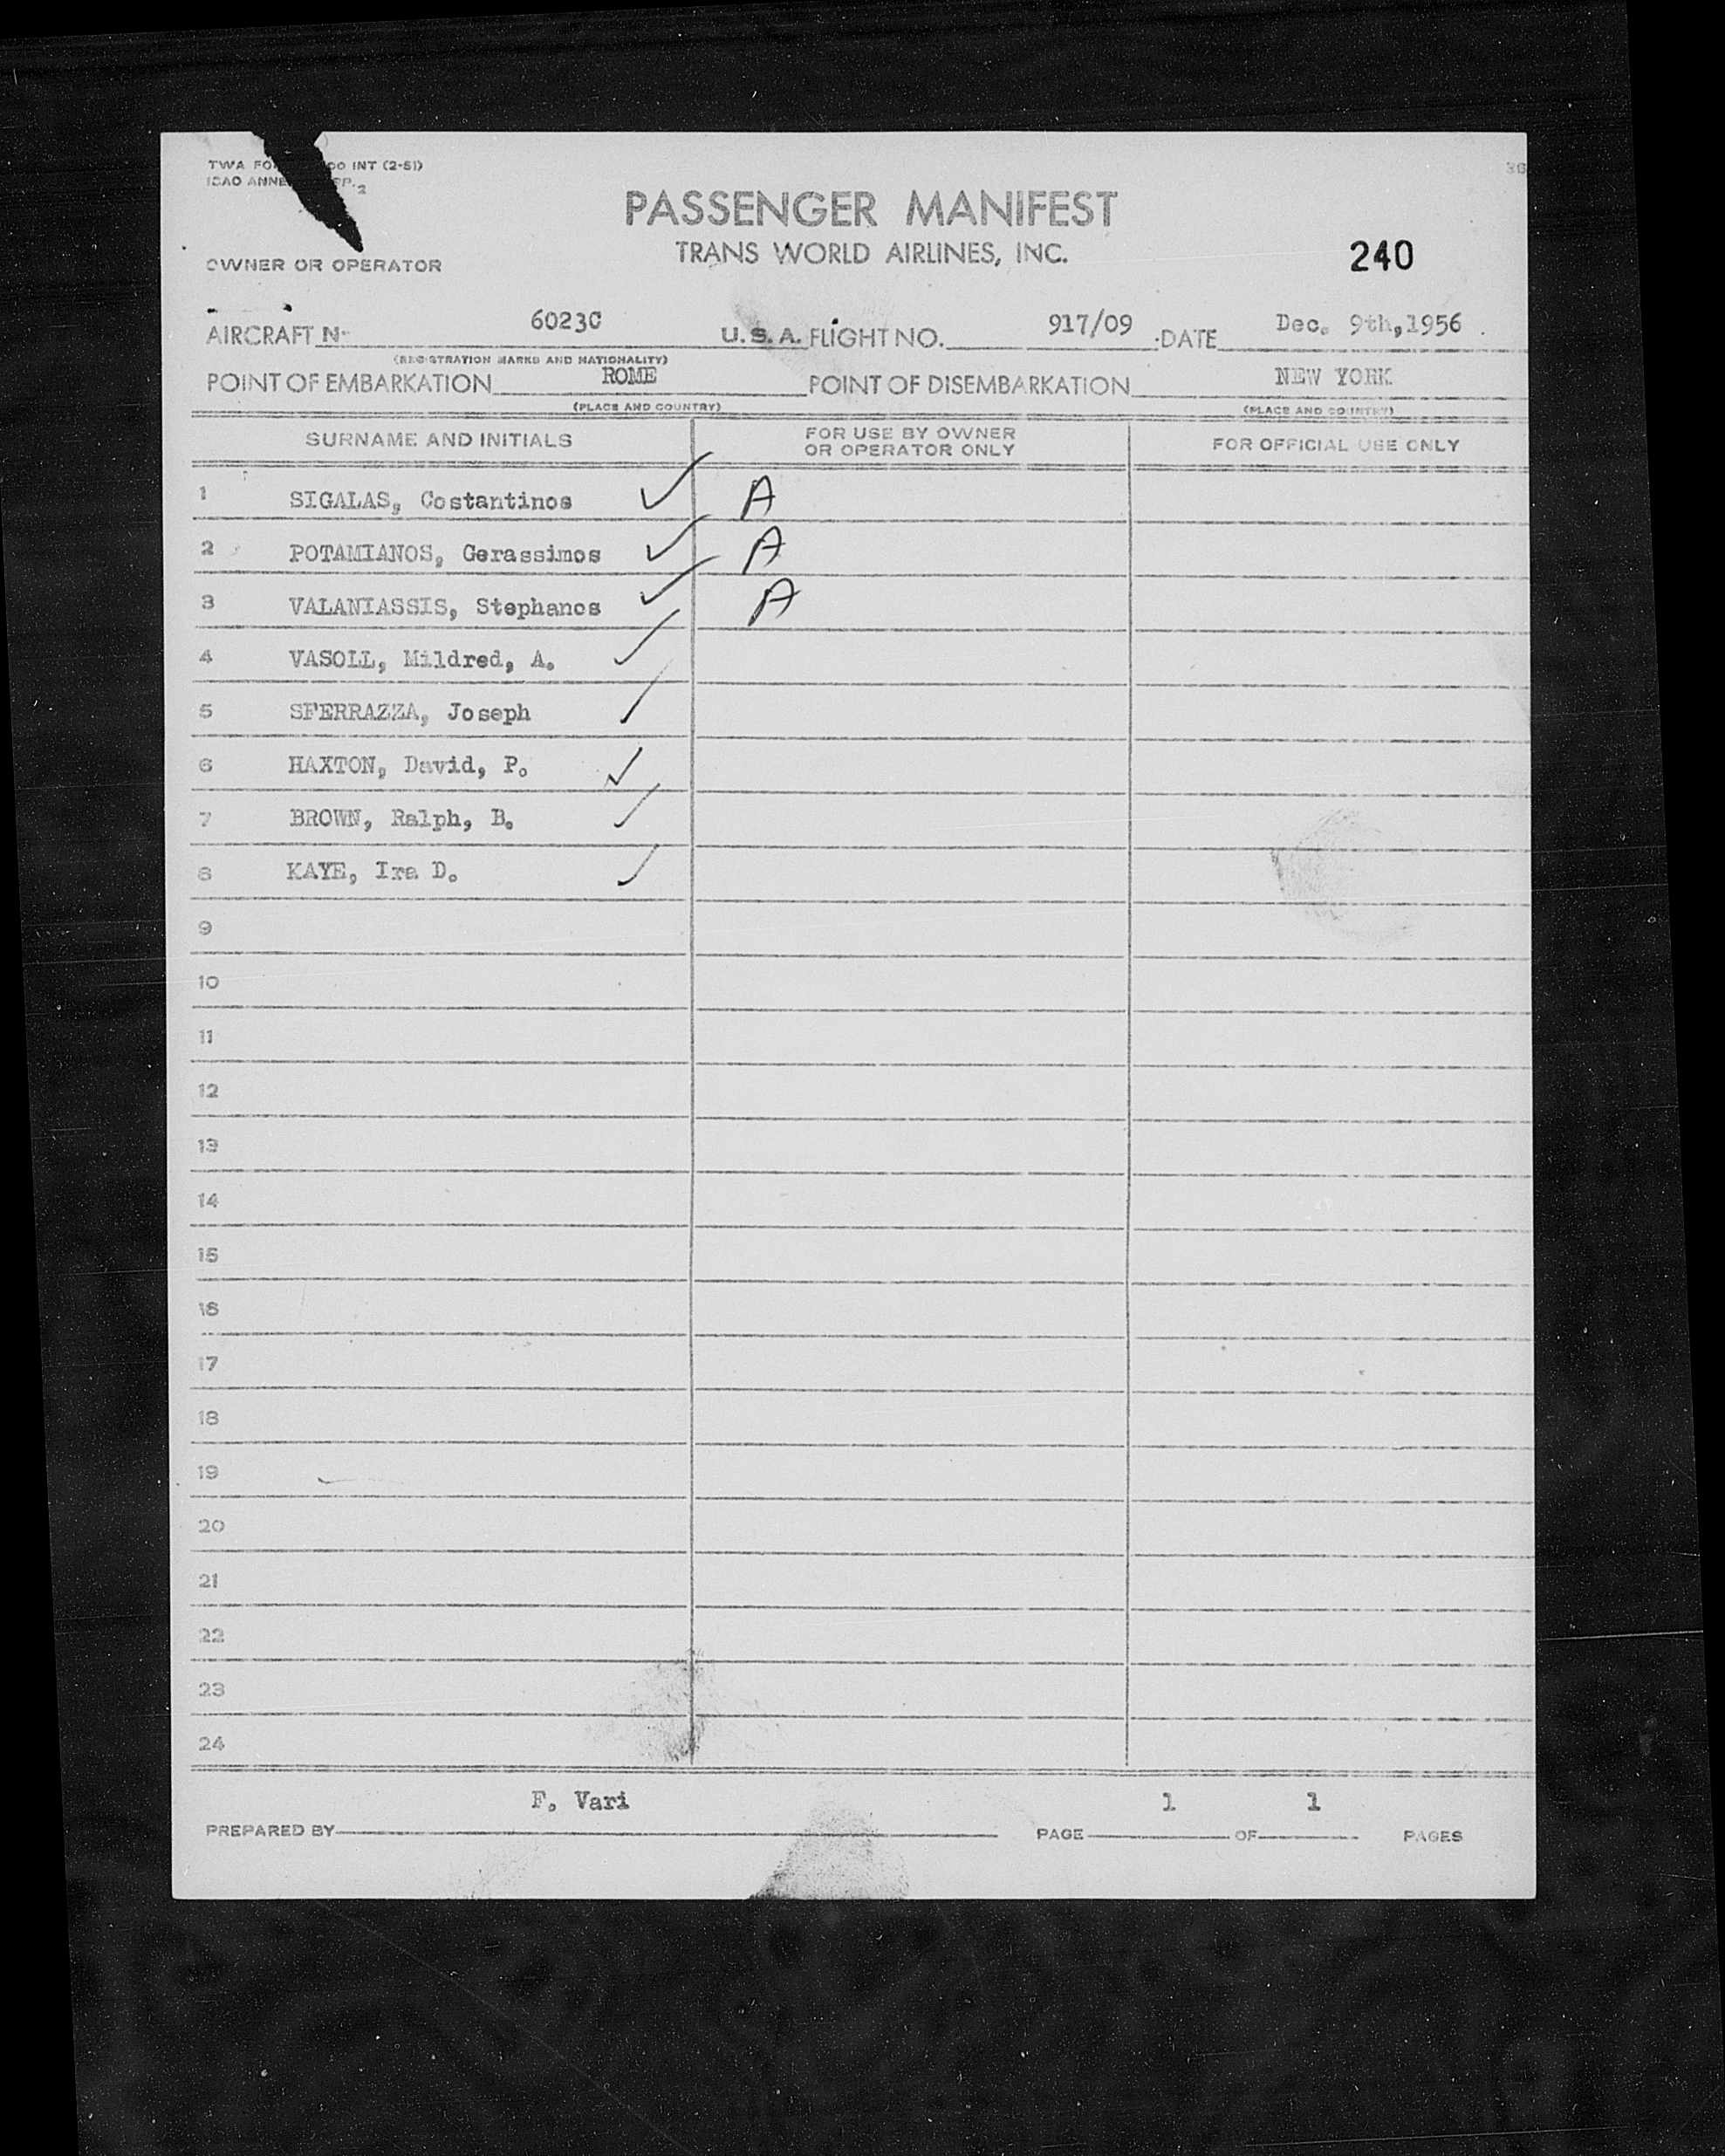 TWA FO 00 INT (2-51)
ICAO ANNE P. 2
PASSENGER MANIFEST
TRANS WORLD AIRLINES, INC.
240
OWNER OR OPERATOR
AIRCRAFT N- 6023C U.S.A. FLIGHT NO. 917/09 DATE Dec. 9th,1956
(REGISTRATION MARKS AND NATIONALITY)
POINT OF EMBARKATION ROME POINT OF DISEMBARKATION NEW YORK
(PLACE AND COUNTRY) (PLACE AND COUNTRY)
SURNAME AND INITIALS FOR USE BY OWNER OR OPERATOR ONLY FOR OFFICIAL USE ONLY
1 SIGALAS, Costantinos ✓ A
2 POTAMIANOS, Gerassimos ✓ A
3 VALANIASSIS, Stephanos ✓ A
4 VASOLL, Mildred, A. ✓
5 SFERRAZZA, Joseph ✓
6 HAXTON, David, P. ✓
7 BROWN, Ralph, B. ✓
8 KAYE, Ira D. ✓
9
10
11
12
13
14
15
16
17
18
19
20
21
22
23
24
PREPARED BY F. Vari PAGE 1 OF 1 PAGES